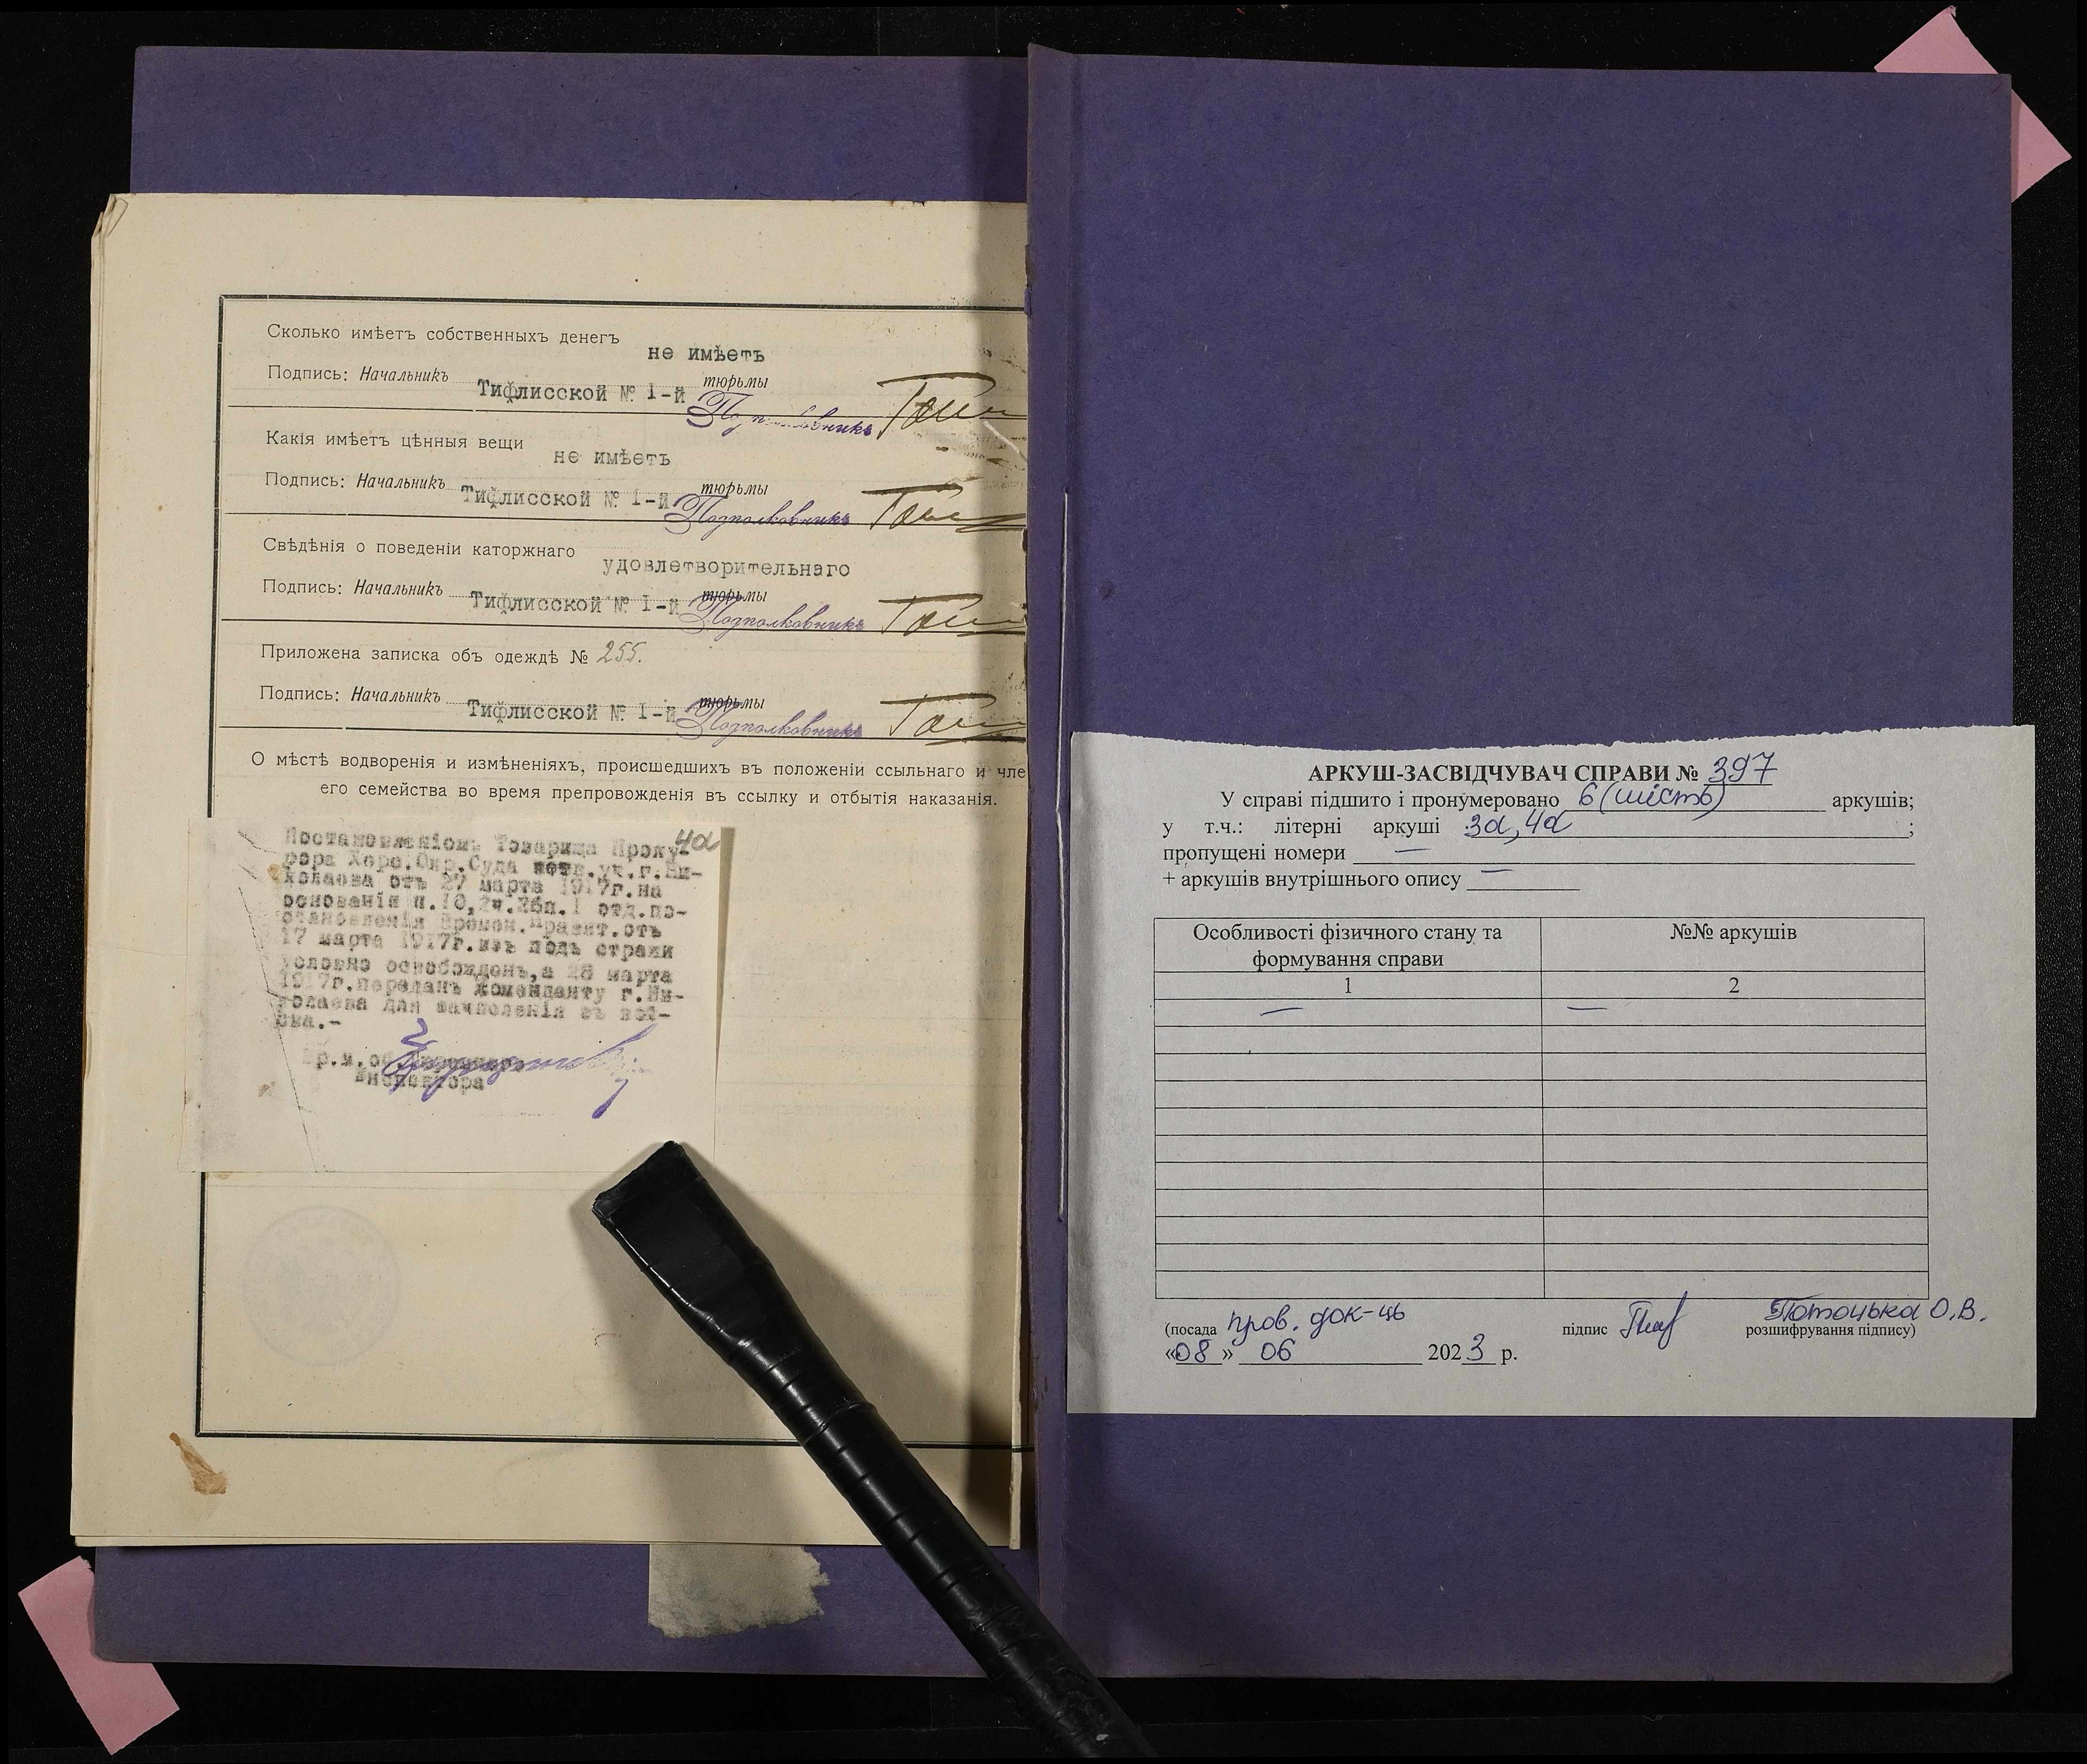 Сколько имѣетъ собственныхъ денегъ
не имѣетъ
Подпись: Начальникъ Тифлисской № I-й тюрьмы
Подполковникъ
Какія имѣетъ цѣнныя вещи
не имѣетъ
Подпись: Начальникъ Тифлисской № I-й тюрьмы
Подполковникъ
Свѣдѣнія о поведеніи каторжнаго
удовлетворительнаго
Подпись: Начальникъ Тифлисской № I-й тюрьмы
Подполковникъ
Приложена записка объ одеждѣ № 255.
Подпись: Начальникъ Тифлисской № I-й тюрьмы
Подполковникъ
О мѣстѣ водворенія и измѣненіяхъ, происшедшихъ въ положеніи ссыльнаго и чле
его семейства во время препровожденія въ ссылку и отбытія наказанія.
4а
Постановленіемъ Товарища Проку-
рора Херс.Окр.Суда уч.г.Ни-
колаева отъ 27 марта 1917г.на
основаніи п.10, отд.по-
становленія Времен.Правит.отъ
17 марта 1917г.изъ подъ стражи
условно освобожденъ,а 28 марта
1917г.переданъ Коменданту г.Ни-
колаева для зачисленія въ вой-
ска.-
Инспектора
АРКУШ-ЗАСВІДЧУВАЧ СПРАВИ № 397
У справі підшито і пронумеровано 6 (шість) аркушів;
у т.ч.: літерні аркуші 3а, 4а ;
пропущені номери —
+ аркушів внутрішнього опису —
Особливості фізичного стану та формування справи
№№ аркушів
1 2
— —
(посада пров. док-ць підпис Потоцька О.В. розшифрування підпису)
«08» 06 2023 р.